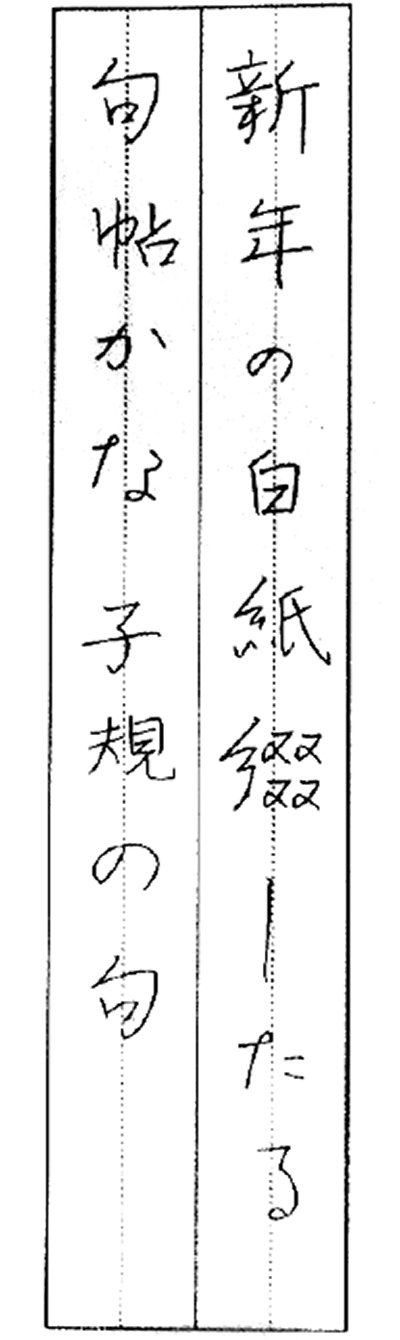 新年の白紙綴したる
句帖かな 子規の句